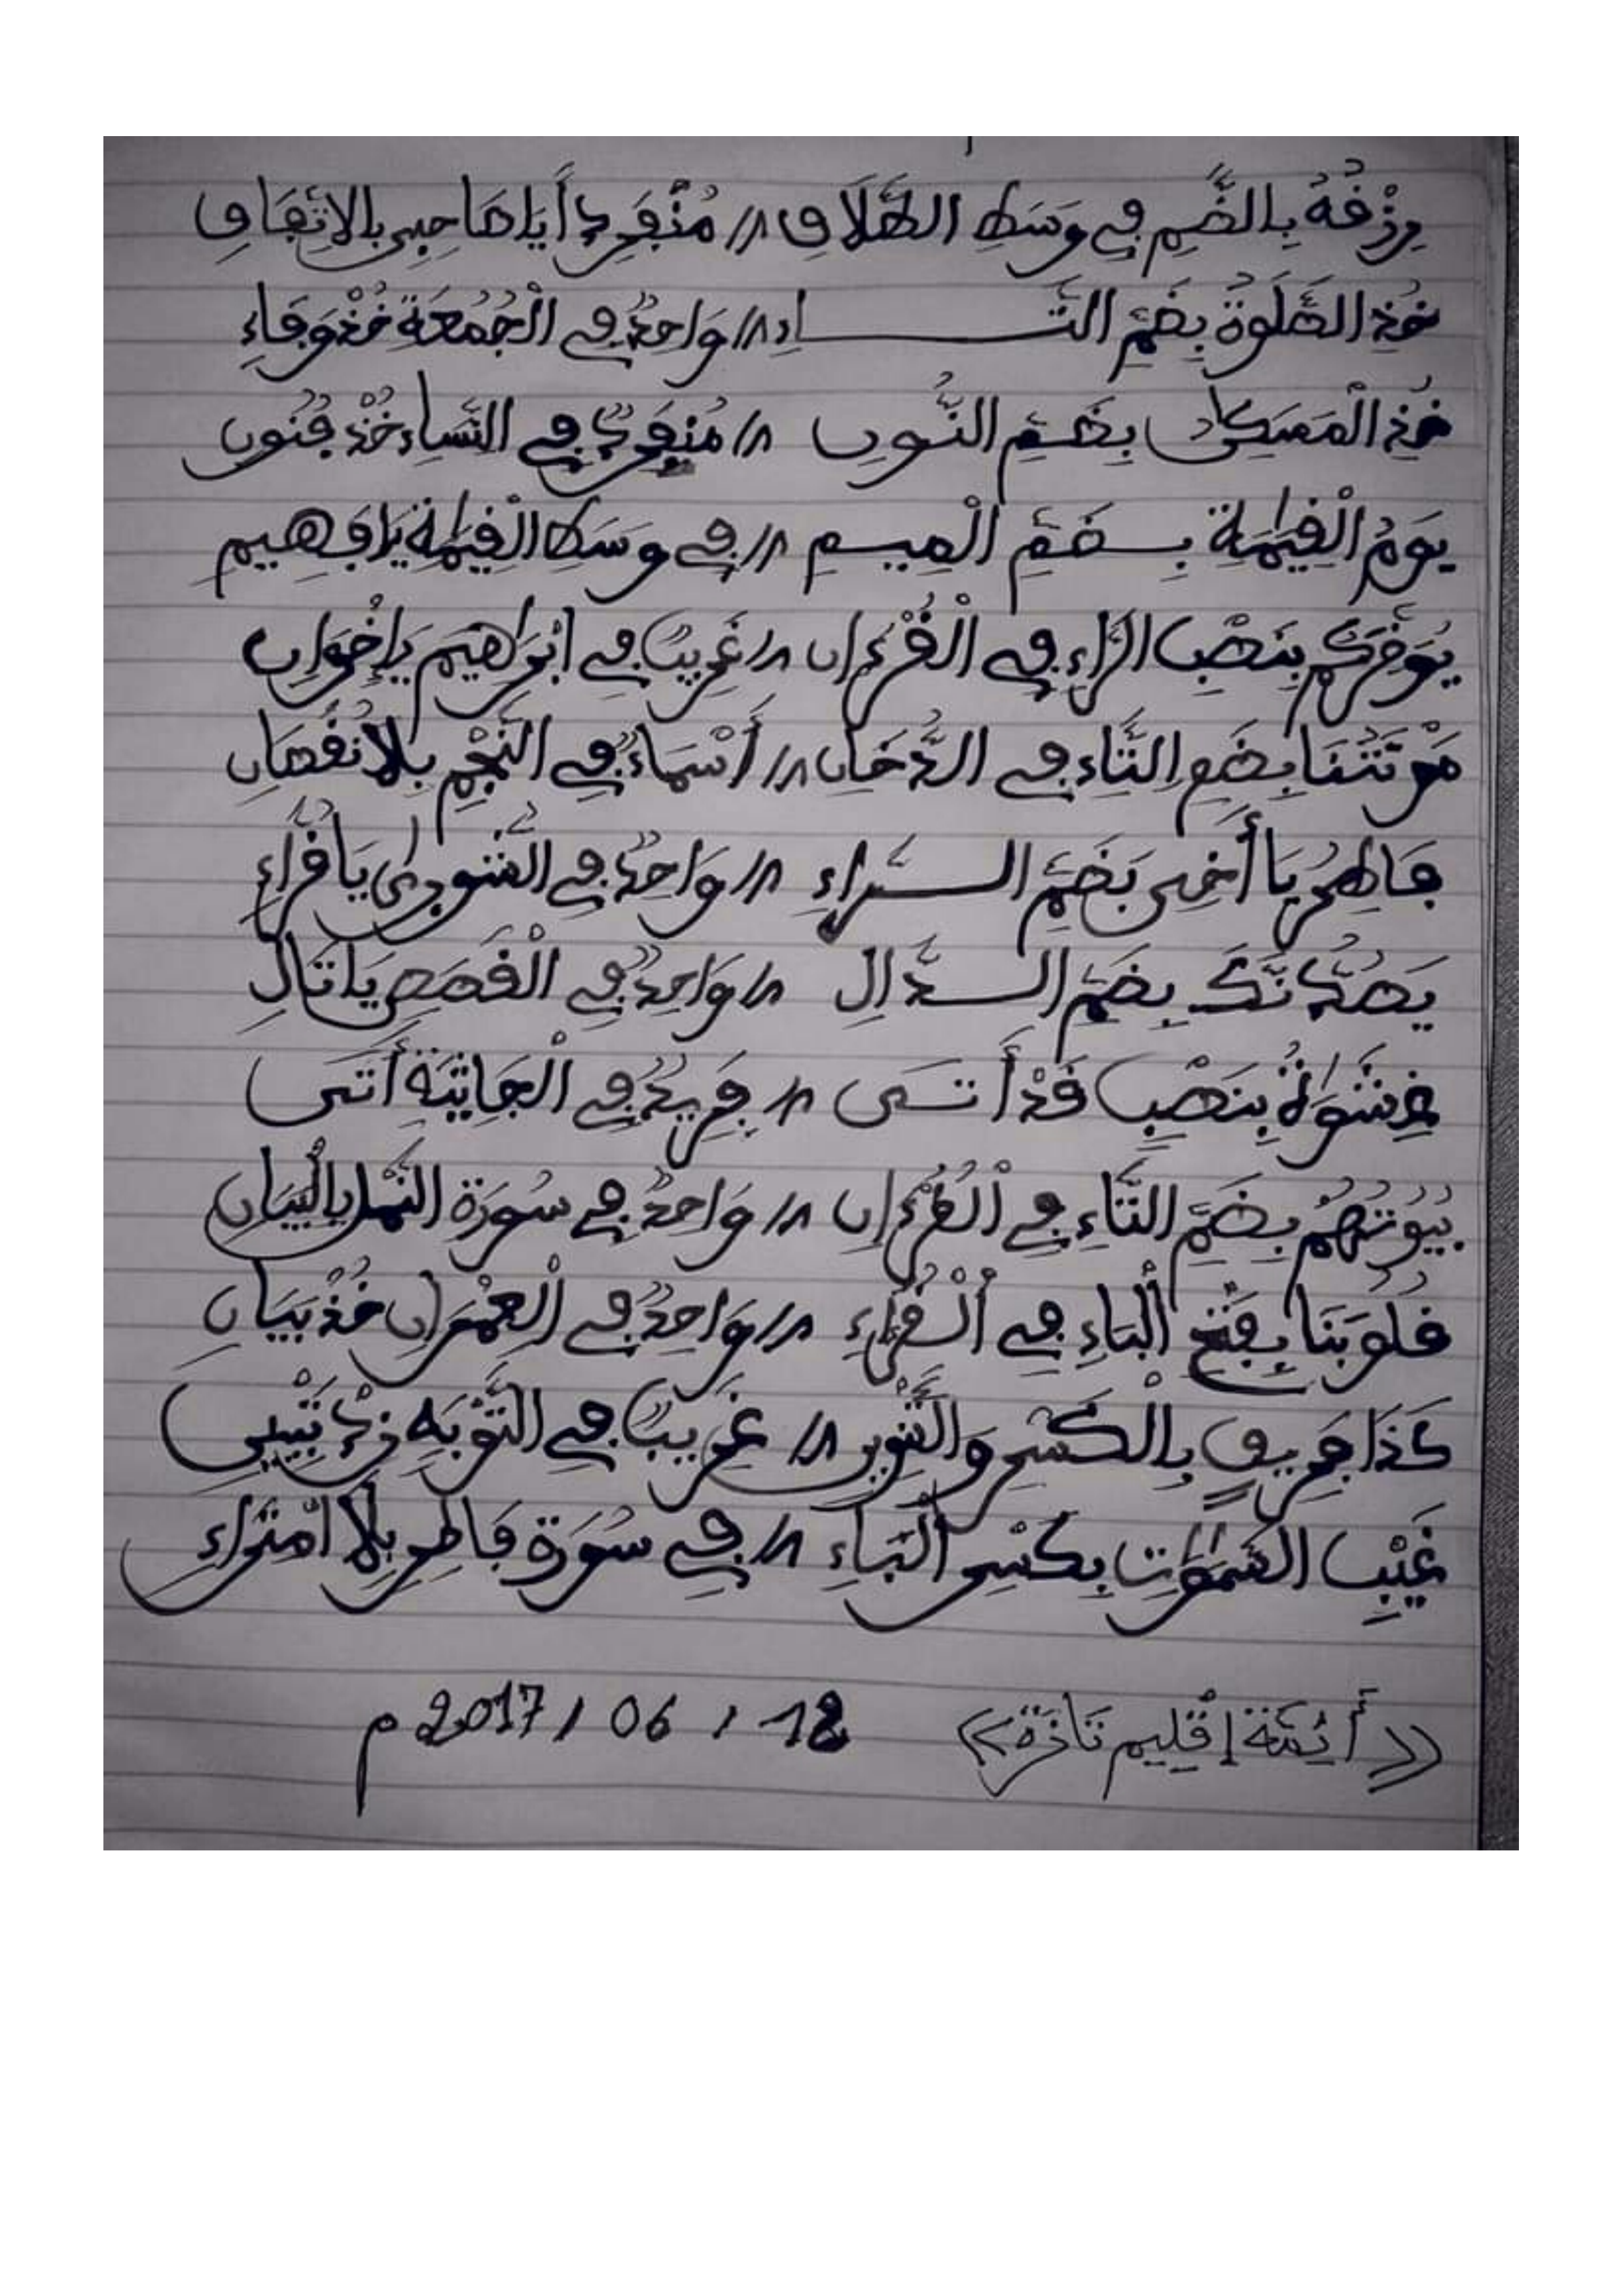 رِزْقُهُ بِالضَّمِ فِي وَسَطِ الطَّلَاقِ // مُنْفَرِدٌ أَيَا صَاحِبِي بِالاِتِّفَاقِ
خُذِ الصَّلَوٰةُ بِضَمِّ التَّـــــاءِ // وَاحِدٌ فِي الْجُمُعَةِ خُذْ وَفَاءِ
خُذِ الْمَسَٰكِينُ بِضَمِّ النُّـونِ // مُنْفَرِدٌ فِي النِّسَاءِ خُذْ فُنُونِ
يَوْمُ الْقِيَٰمَةِ بِـضَمِّ الْمِيـمِ // فِي وَسَطِ الْقِيَٰمَةِ يَا فَهِيم
يُؤَخِّرَكُمْ بِنَصْبِ الرَّاءِ فِي الْقُرْءَانِ // غَرِيبٌ فِي إبْرَاهِيمَ يَا إِخْوَانِ
مَوْتَتُنَا بِضَمِّ التَّاءِ فِي الدُّخَانِ // أَسْمَاءٌ فِي النَّجْمِ بِلَا نُقْصَانِ
فَاطِرُ يَا أَخِي بِضَمِّ الـــرَّاءِ // وَاحِدٌ فِي الشُّورَىٰ يَا قُرَّاءِ
يَصُدُّنَّكَ بِضَمِّ الـــدَّالِ // وَاحِدٌ فِي الْقَصَصِ يَا تَالِ
غِشَٰوَةً بِنَصْبٍ قَدْ أَتَـى // فَرِيدٌ فِي الْجَاثِيَةِ أَتَى
بُيُوتُهُمْ بِضَمِّ التَّاءِ فِي الْقُرْءَانِ // وَاحِدٌ فِي سُورَةِ النَّمْلِ بِالْبَيَانِ
قُلُوبَنَا بِفَتْحِ الْبَاءِ فِي الْقُرَّاءِ // وَاحِدٌ فِي الْعِمْرَانِ خُذْ بَيَانِ
كَذَا فَرِيقٍ بِالْكَسْرِ وَالتَّنْوِينِ // غَرِيبٌ فِي التَّوْبَةِ زِدْ تَبْيِينِ
غَيْبِ السَّمَٰوَٰتِ بِكَسْرِ الْبَاءِ // فِي سُورَةِ فَاطِرِ بِلَا امْتِرَاءِ
<< أَئِمَّة إِقْلِيم تَازَة >> 18 / 06 / 2017 م